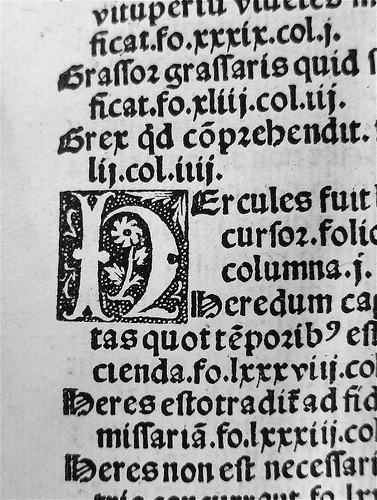 ficat.fo.xxxix.col.j.
Grassor grassaris quid
ficat.fo.xliij.col.iij.
Grex qđ cōprehendit.
lij.col.iiij.
HErcules fuit
cursor.folio
columna.j.
Heredum cap
tas quot tēporibꝰ est
cienda.fo.lxxxviij.col
Heres esto tradit ad fid
missariā.fo.lxxxiij.co
Heres non est necessari